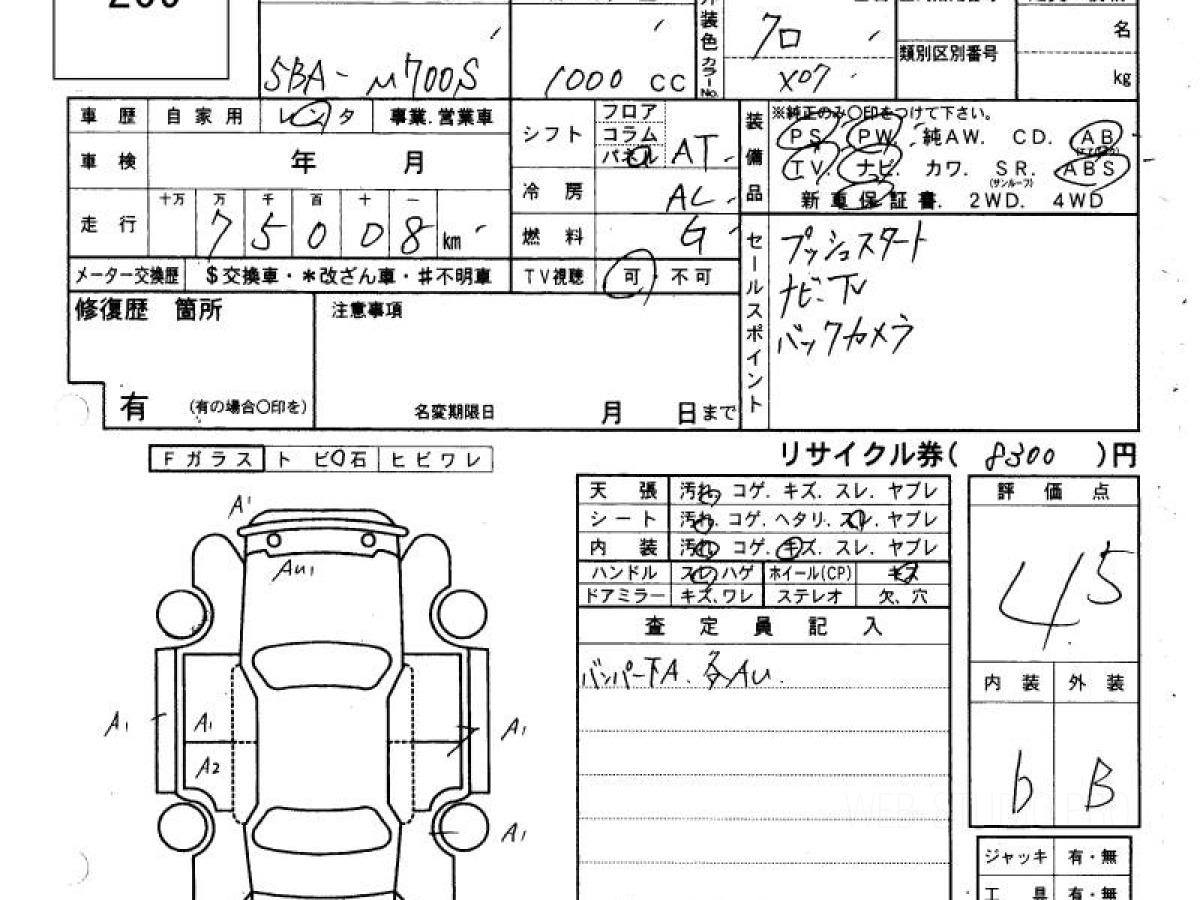 5BA- M700S
1000 CC
外装色 カラーNo.
クロ
X07
類別区別番号
名
kg
車歴 自家用 レンタ 事業.営業車
車検 年 月
走行 十万 万 千 百 十 一
7 5 0 0 8 km
メーター交換歴 $交換車・*改ざん車・#不明車
シフト フロア コラム パネル AT
冷房 AC
燃料 G
TV視聴 可・不可
装備品
※純正のみ〇印をつけて下さい。
PS. PW. 純AW. CD. AB(エアバック)
TV. ナビ. カワ. SR.(サンルーフ) ABS
新車保証書. 2WD. 4WD
セールスポイント
プッシュスタート
ナビ、TV
バックカメラ
修復歴 箇所
有 (有の場合〇印を)
注意事項
名変期限日 月 日まで
Fガラス トビ石 ヒビワレ
リサイクル券( 8300 )円
天張 汚れ. コゲ. キズ. スレ. ヤブレ
シート 汚れ. コゲ. ヘタリ. スレ. ヤブレ
内装 汚れ. コゲ. キズ. スレ. ヤブレ
ハンドル スレ.ハゲ ホイール(CP) キズ
ドアミラー キズ、ワレ ステレオ 欠、穴
査定員記入
バンパー下A. 各AU.
評価点
4.5
内装 外装
b B
ジャッキ 有・無
工具 有・無
A1
AU1
A1
A1
A2
A1
A1